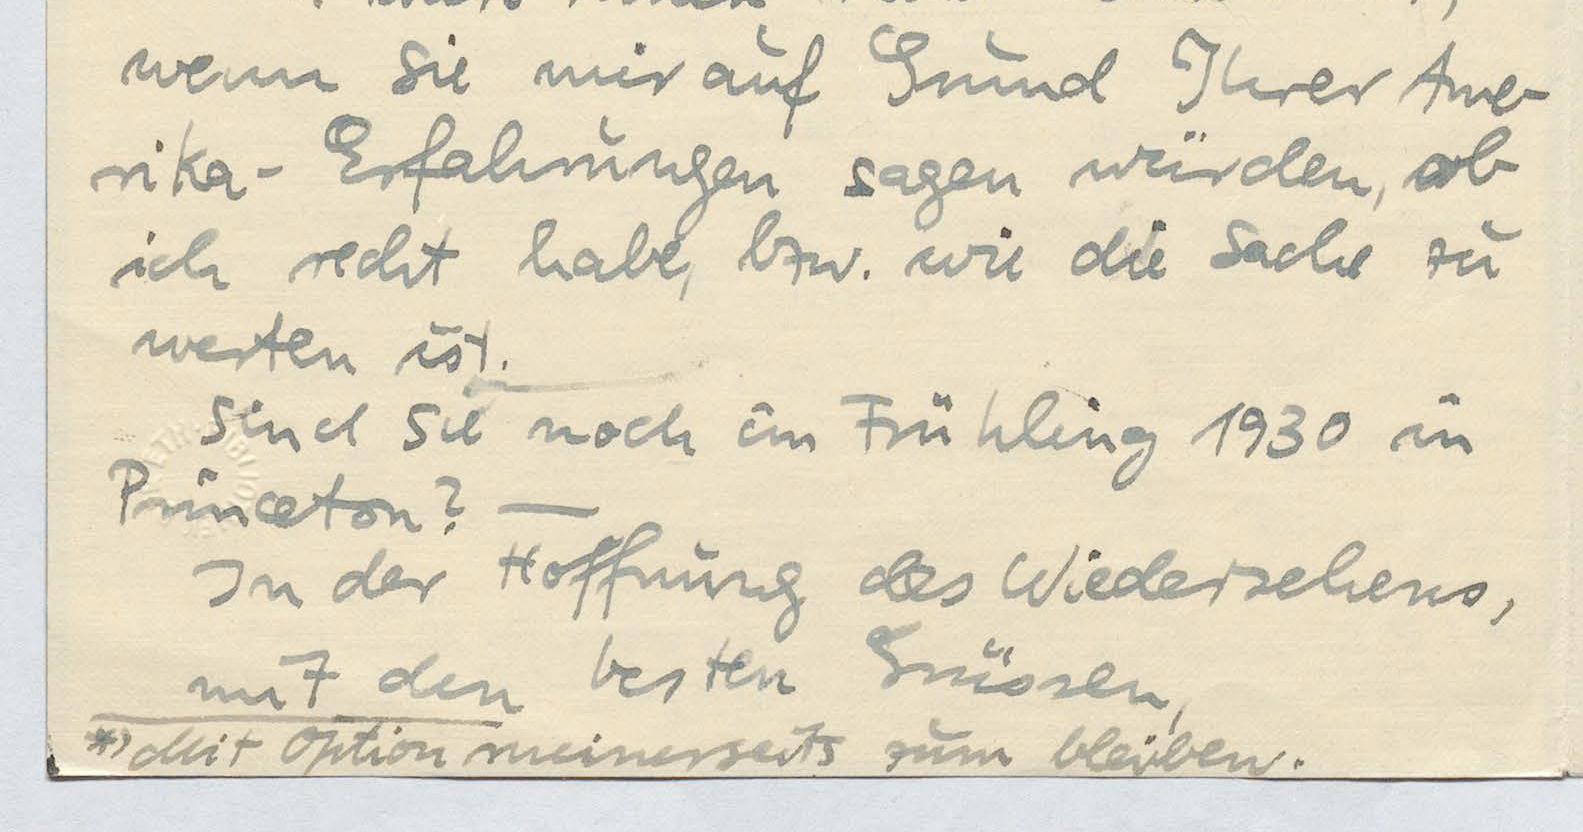 wenn Sie mir auf Grund Ihrer Ame-
rika-Erfahrungen sagen würden, ob
ich recht habe, bzw. wie die Sache zu
werten ist.
Sind Sie noch im Frühling 1930 in
Princeton? —
In der Hoffnung des Wiedersehens,
mit den besten Grüssen,
*) Mit Option meinerseits zum bleiben.